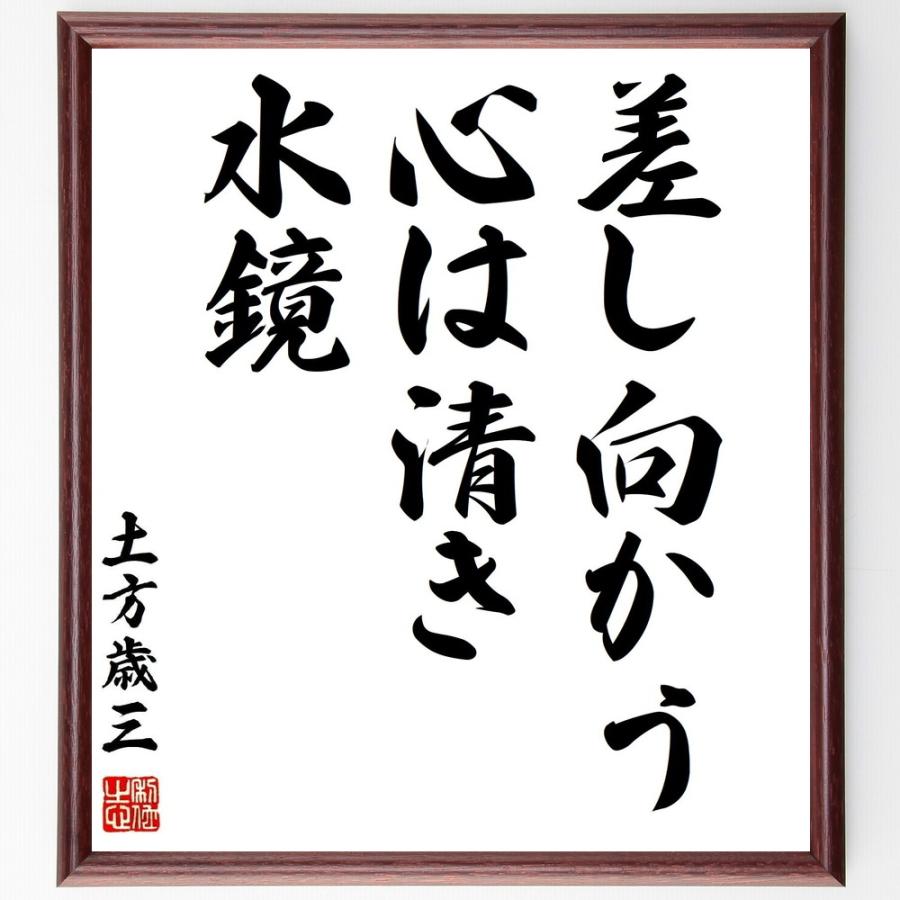 差し向かう
心は清き
水鏡
土方歳三